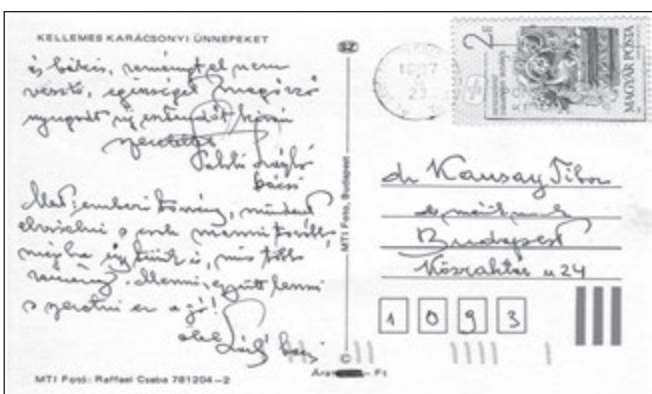 KELLEMES KARÁCSONYI ÜNNEPEKET
és békés, reményt el nem
vesztő, egészséget megőrző
nyugodt új esztendőt kíván
szeretettel
László
bácsi
emberi törvény, mindent
elviselni s csak menni tovább,
még ha így is, nincs több
remény. Menni, együtt lenni
s szeretni ez a jó!
ölel László bácsi
MTI Fotó: Raffael Csaba 781204–2
SZ
MTI Foto, Budapest
Ára: Ft
2 Ft
MAGYAR POSTA
1987
23
dr Kausay Tibor
Budapest
Közraktár u 24
1093